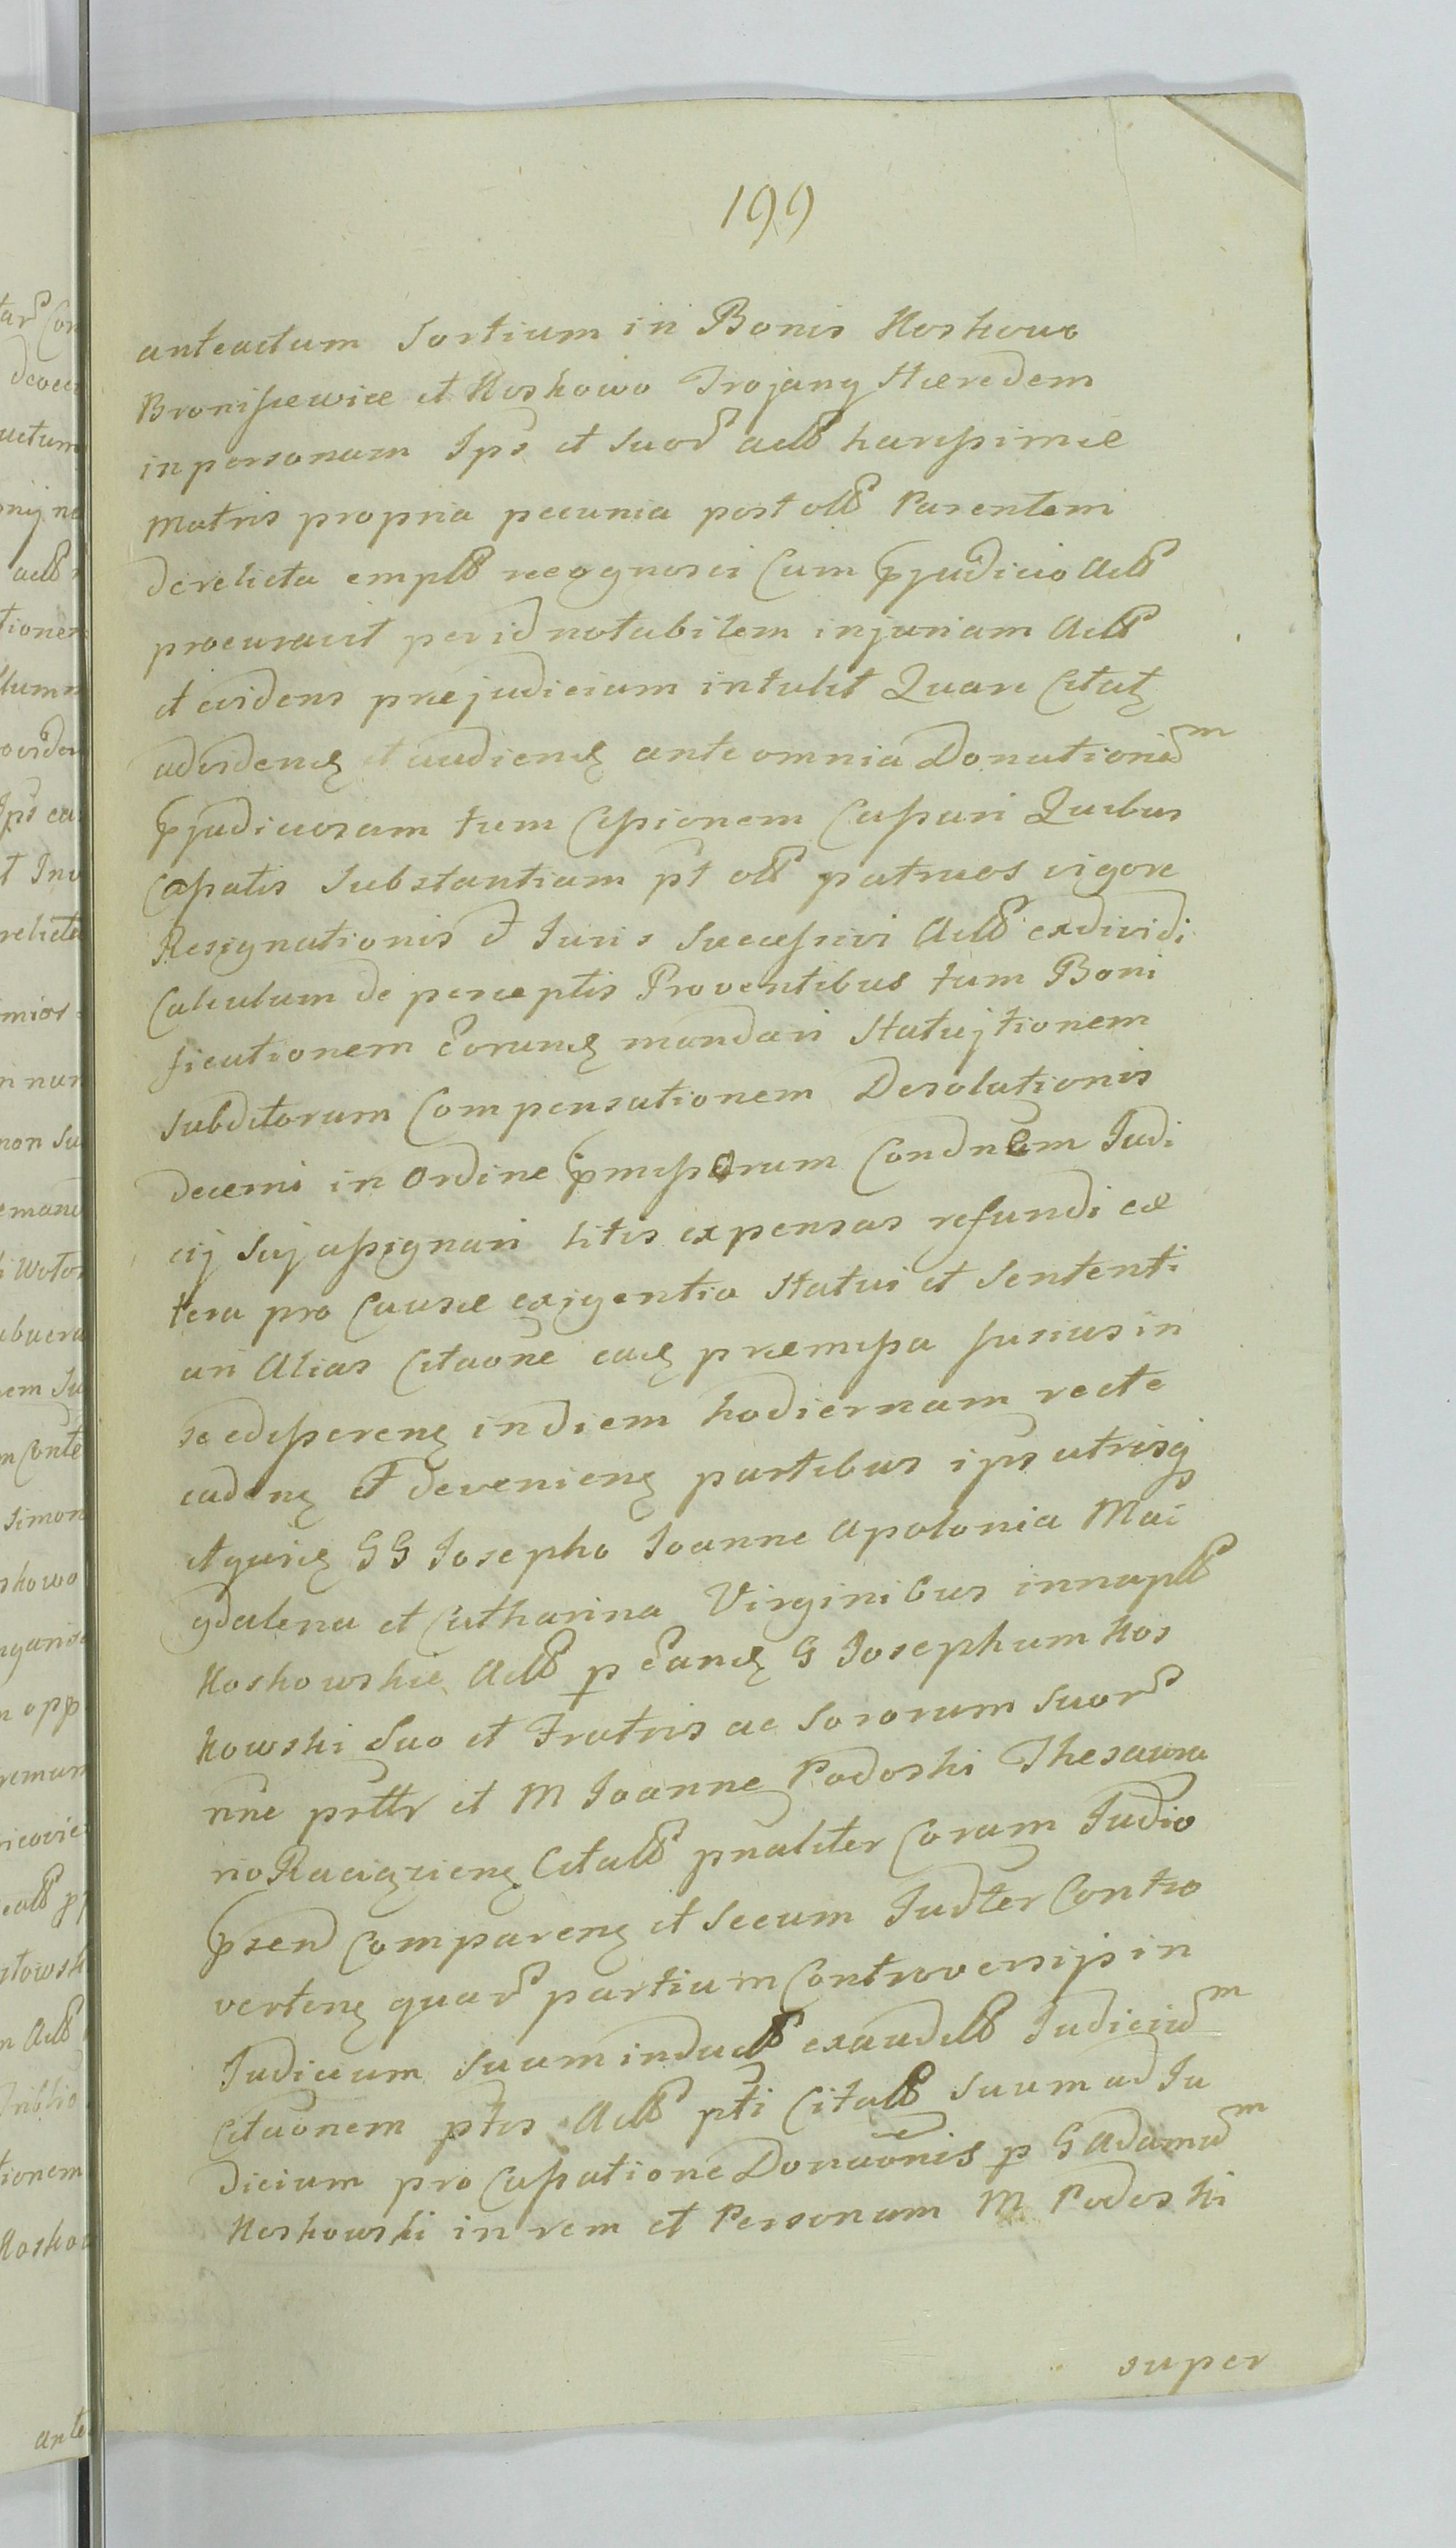 199
anteactum Sortium in Bonis Koskowo
Broniszewice et Koskowo Trojany Hæredem
in personam Ips et Suor Actb harissimæ
Matris propria pecunia post olb Parentem
derelicta emptb recognosci Cum pjudicio Actb
procuravit per id notabilem injuriam Actb
et evidens præjudicium intulit Quare Citatq
ad videndq et audiendq ante omnia Donationem
pjudiciosam tum Cessionem Cassari Quibus
Cassatis Substantiam pt olb patruos vigore
Resignationis et Juris Successivi Actb exdividi
Calculum de perceptis Proventibus tum Boni
ficationem Eorundq mandari Statujtionem
Subditorum Compensationem Desolationis
decerni in Ordine pmissorum Condnem Judi
cij Suj assignari litis expensas refundi cæ
tera pro Causæ exigentia Statui et Sententi
ari Alias Citaone eadq præmissa fusius in
se edisserenq in diem hodiernam recte
cadenq et devenienq partibus ips utrisq
GG Josepho Joanne Apolonia Ma
gdalena et Catharina Virginibus innuptb
Koskowskie Actb p Eandq G Josephum Kos
kowski Suo et Fratris ac Sororum Suor
nne prttr et M Joanne Podoski Thesaura
rio Raciązienq Citatb pnaliter Coram Judio
psend Comparenq et Secum Judter Contro
vertenq quar partium Controversijs in
Judicium Suum inductb exauditb Judicium
Citaonem ptis Actb pti Citatb Suum ad Ju
dicium pro Cassatione Donaonis p G Adamum
Koskowski in rem et Personam M Podoski
super